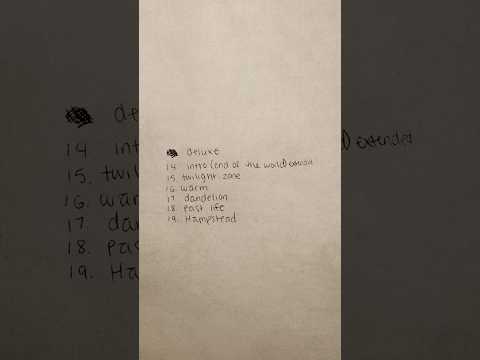 deluxe
14 intro (end of the world) extended
15. twilight zone
16. warm
17 dandelion
18. past life
19. Hampstead